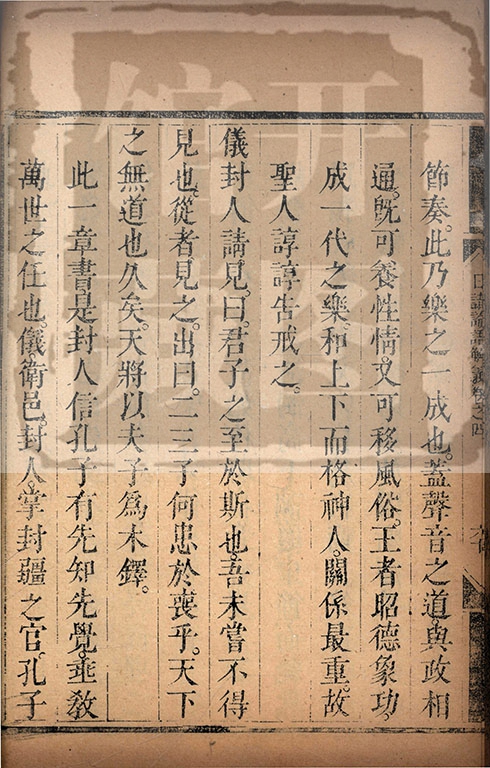 節奏。此乃樂之一成也。蓋聲音之道與政相
通。旣可養性情。又可移風俗。王者昭德象功。
成一代之樂。和上下而格神人。關係最重。故
聖人諄諄告戒之。
儀封人請見。曰。君子之至於斯也。吾未嘗不得
見也。從者見之。出曰。二三子何患於喪乎。天下
之無道也久矣。天將以夫子爲木鐸。
此一章書是封人信孔子有先知先覺。垂敎
萬世之任也。儀衛邑。封人。掌封疆之官。孔子